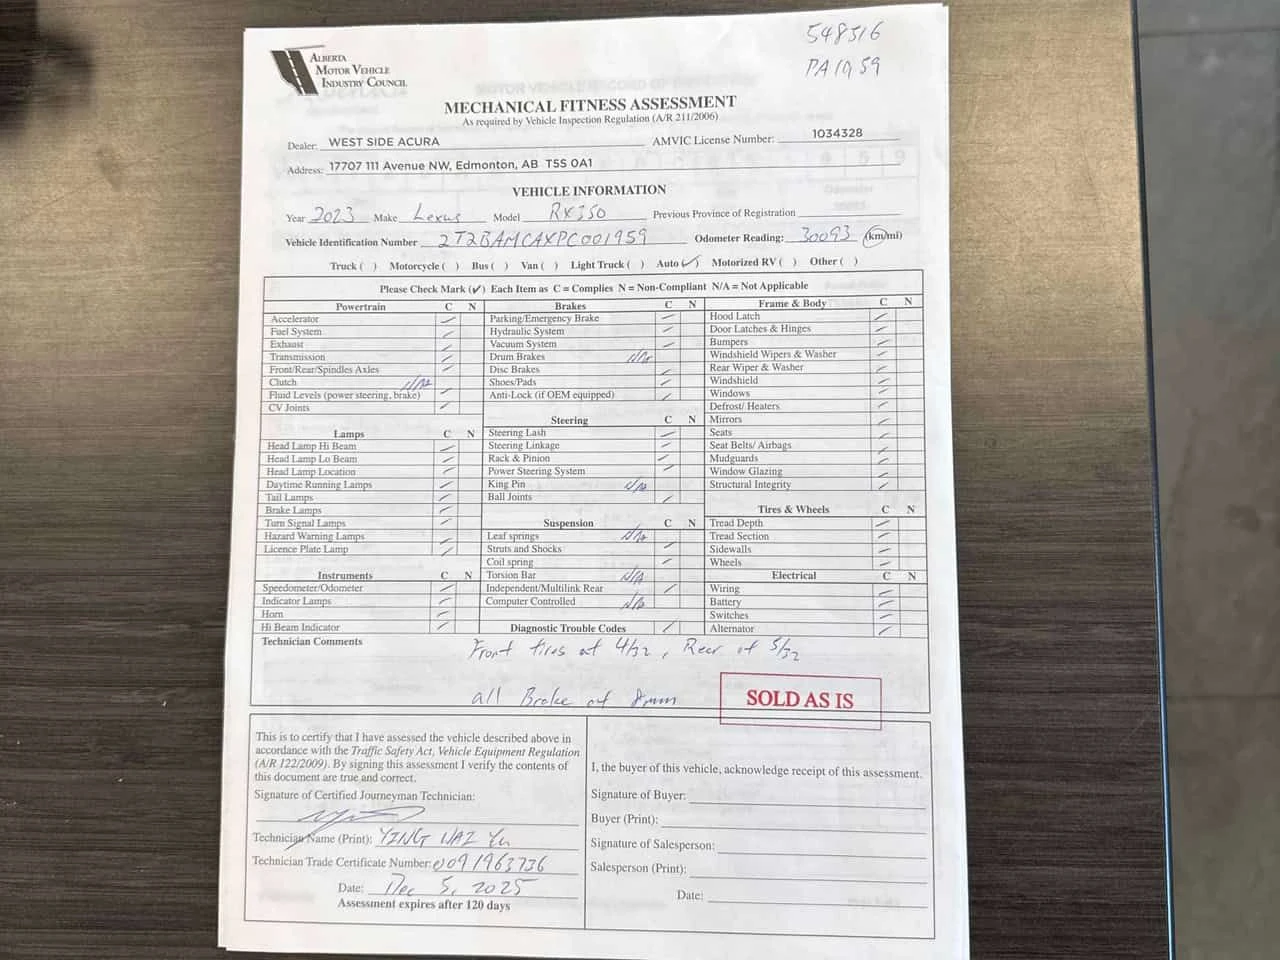 548516
PA10959
ALBERTA
MOTOR VEHICLE
INDUSTRY COUNCIL
MECHANICAL FITNESS ASSESSMENT
As required by Vehicle Inspection Regulation (A/R 211/2006)
Dealer: WEST SIDE ACURA AMVIC License Number: 1034328
Address: 17707 111 Avenue NW, Edmonton, AB T5S 0A1
VEHICLE INFORMATION
Year 2023 Make Lexus Model RX350 Previous Province of Registration
Vehicle Identification Number 2T2BAMCAXPC001959 Odometer Reading: 30093 (km/mi)
Truck ( ) Motorcycle ( ) Bus ( ) Van ( ) Light Truck ( ) Auto (✓) Motorized RV ( ) Other ( )
Please Check Mark (✓) Each Item as C = Complies N = Non-Compliant N/A = Not Applicable
Powertrain C N
Accelerator
Fuel System
Exhaust
Transmission
Front/Rear/Spindles Axles
Clutch N/A
Fluid Levels (power steering, brake)
CV Joints
Lamps C N
Head Lamp Hi Beam
Head Lamp Lo Beam
Head Lamp Location
Daytime Running Lamps
Tail Lamps
Brake Lamps
Turn Signal Lamps
Hazard Warning Lamps
Licence Plate Lamp
Instruments C N
Speedometer/Odometer
Indicator Lamps
Horn
Hi Beam Indicator
Brakes C N
Parking/Emergency Brake
Hydraulic System
Vacuum System
Drum Brakes N/A
Disc Brakes
Shoes/Pads
Anti-Lock (if OEM equipped)
Steering C N
Steering Lash
Steering Linkage
Rack & Pinion
Power Steering System
King Pin N/A
Ball Joints
Suspension C N
Leaf springs N/A
Struts and Shocks
Coil spring
Torsion Bar N/A
Independent/Multilink Rear
Computer Controlled N/A
Diagnostic Trouble Codes
Frame & Body C N
Hood Latch
Door Latches & Hinges
Bumpers
Windshield Wipers & Washer
Rear Wiper & Washer
Windshield
Windows
Defrost/ Heaters
Mirrors
Seats
Seat Belts/ Airbags
Mudguards
Window Glazing
Structural Integrity
Tires & Wheels C N
Tread Depth
Tread Section
Sidewalls
Wheels
Electrical C N
Wiring
Battery
Switches
Alternator
Technician Comments
Front tires at 4/32, Rear at 5/32
all Brake at 8mm
SOLD AS IS
This is to certify that I have assessed the vehicle described above in
accordance with the Traffic Safety Act, Vehicle Equipment Regulation
(A/R 122/2009). By signing this assessment I verify the contents of
this document are true and correct.
Signature of Certified Journeyman Technician:
Technician Name (Print): YING NAI Yu
Technician Trade Certificate Number:
Date: Dec 5, 2025
Assessment expires after 120 days
I, the buyer of this vehicle, acknowledge receipt of this assessment.
Signature of Buyer:
Buyer (Print):
Signature of Salesperson:
Salesperson (Print):
Date: